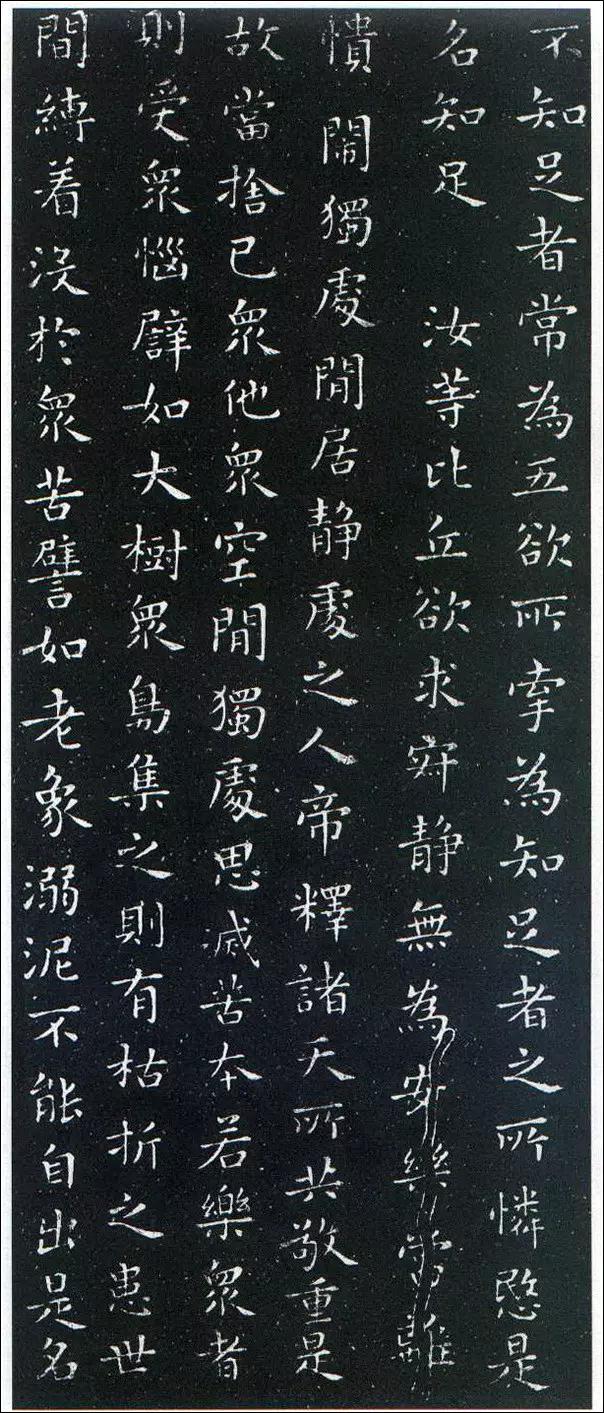 不知足者常為五欲所牽為知足者之所憐愍是
名知足 汝等比丘欲求寂静無為安樂當離
憒閙獨處閒居静處之人帝釋諸天所共敬重是
故當捨已眾他眾空閒獨處思滅苦本若樂眾者
則受眾惱譬如大樹眾鳥集之則有枯折之患世
間縛着没於眾苦譬如老象溺泥不能自出是名